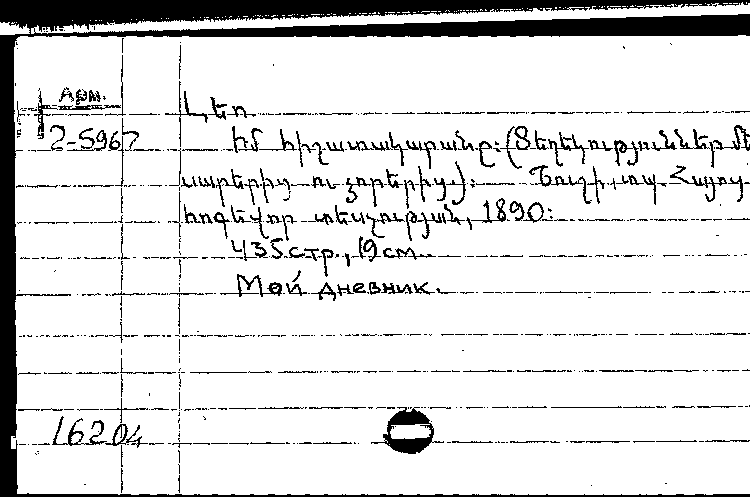 Арм.
2-5967
Լեո.
Իմ հիշատակարանը: (Տեղեկություններ մեր
սարերից ու ձորերից): Շուշի, տպ. Հայոց
հոգևոր տեսչության, 1890:
435 стр., 19 см.
Мой дневник.
16204